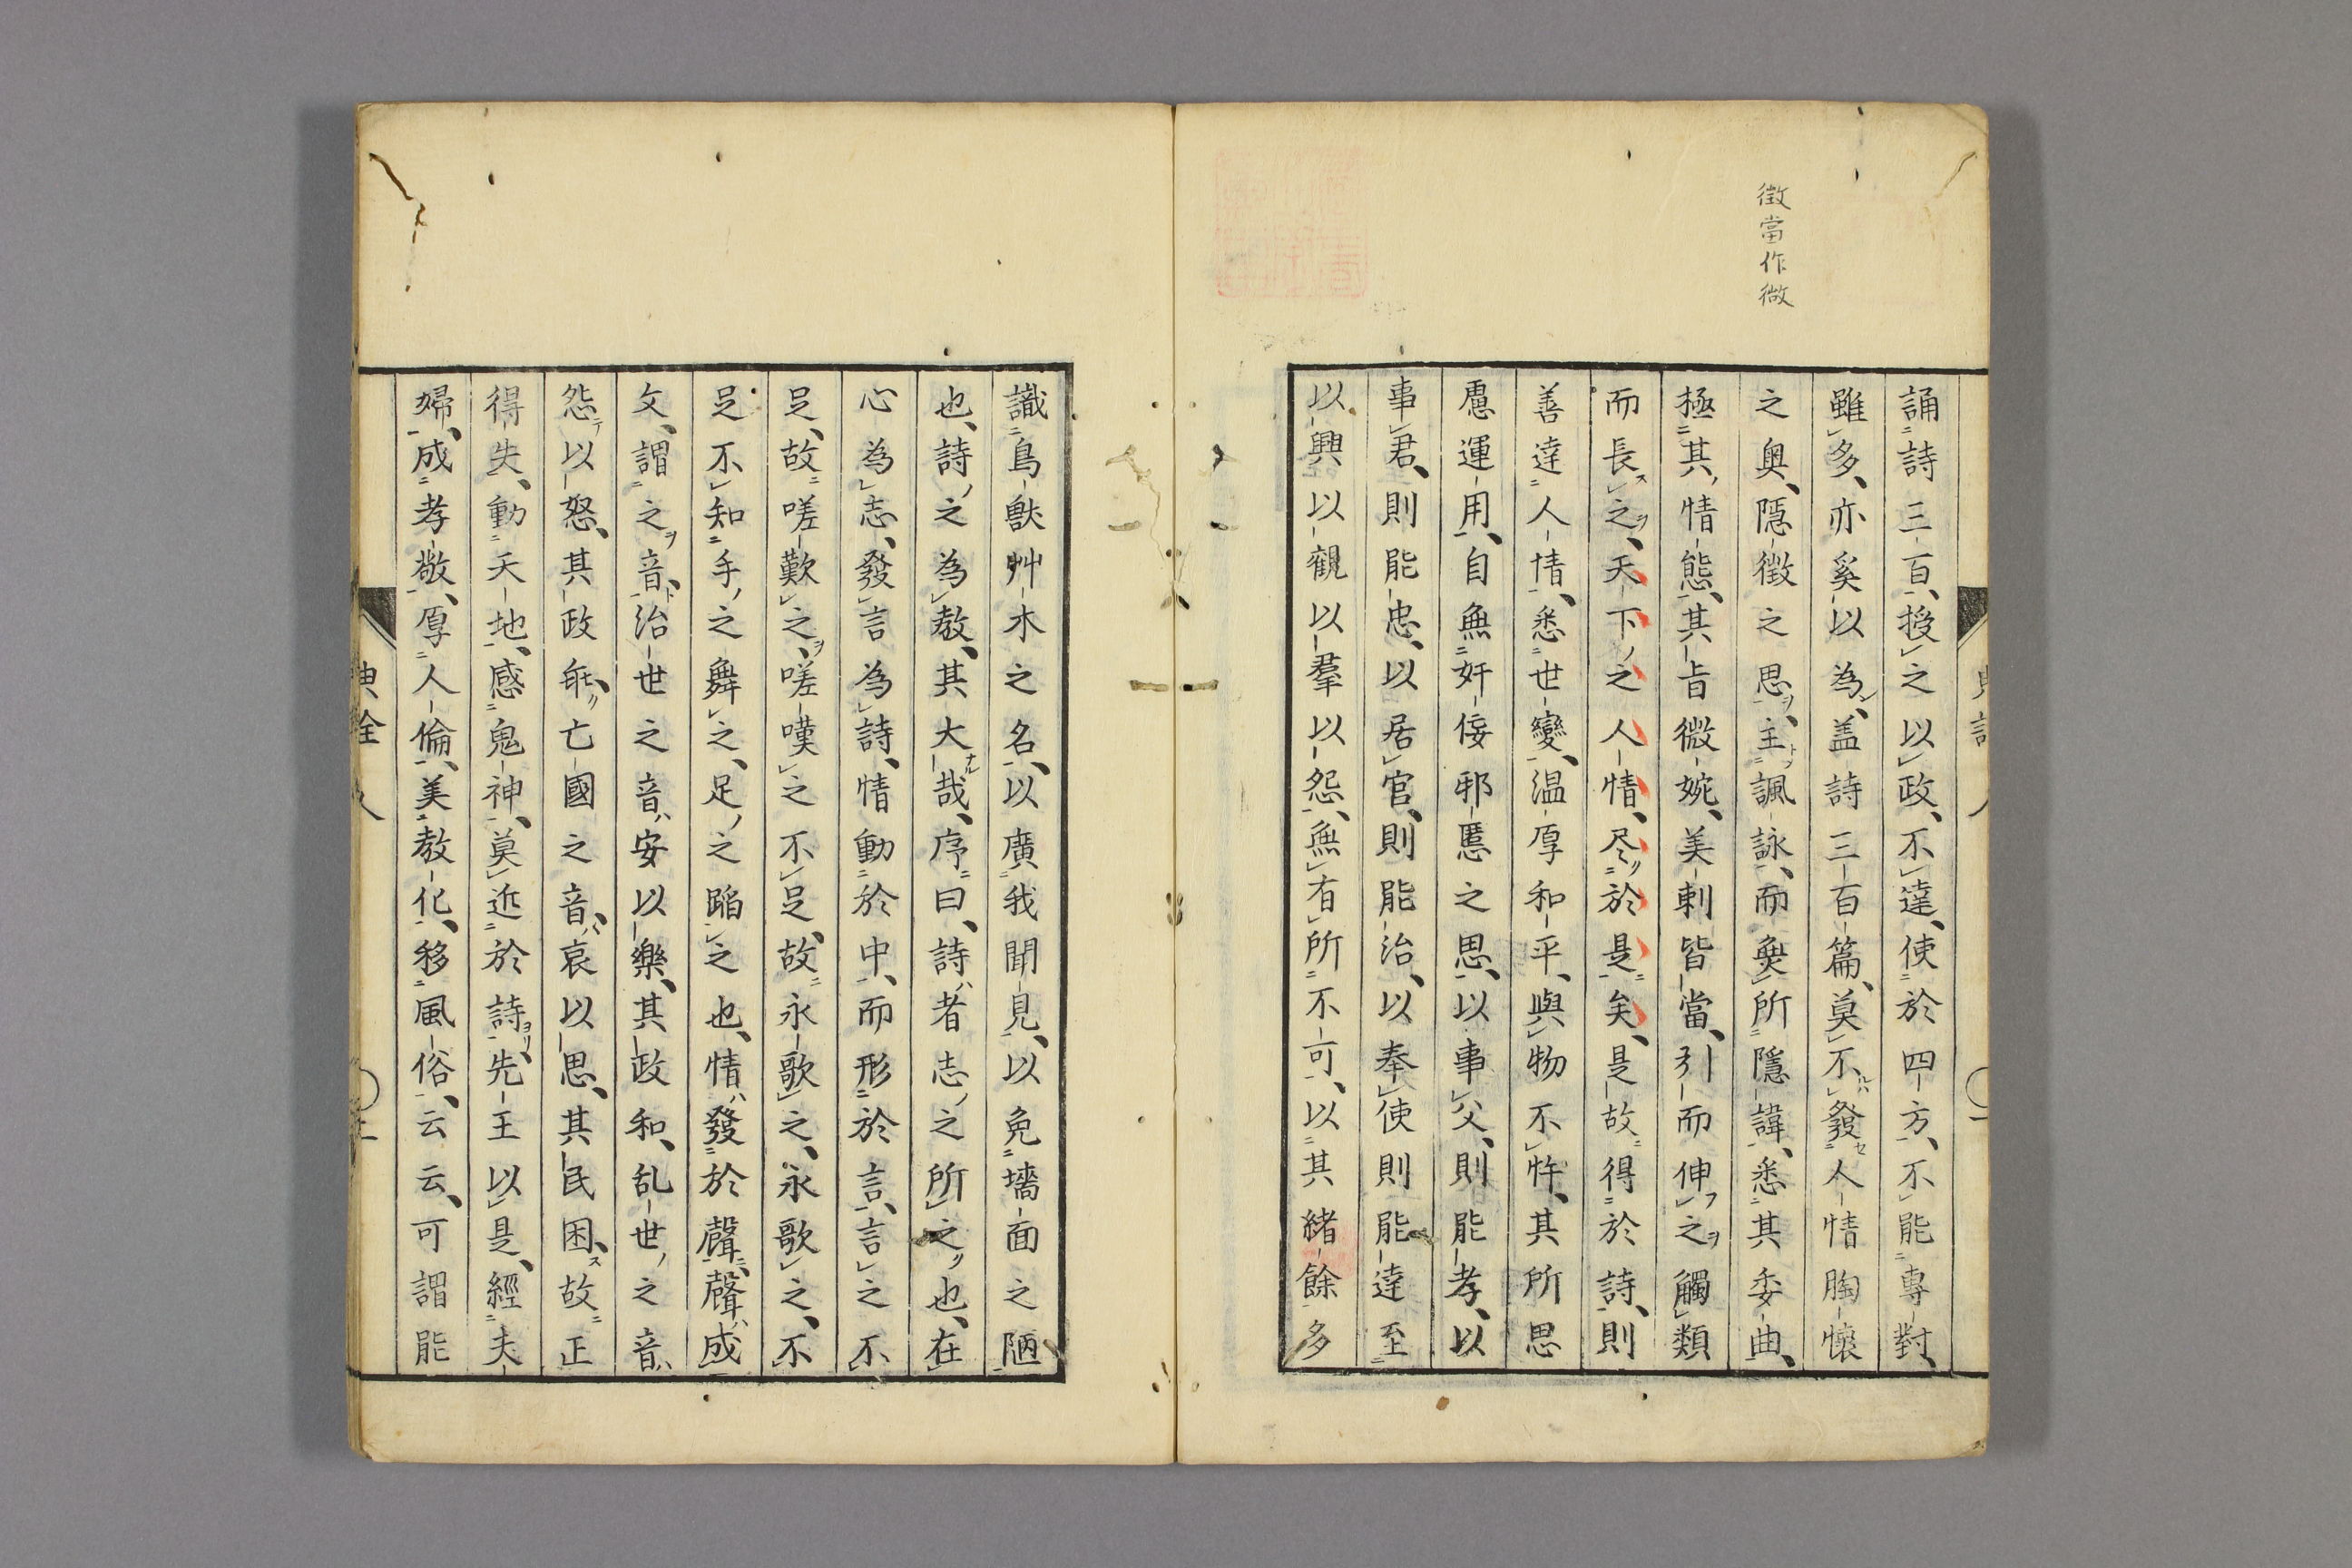 徴當作微
誦詩三百、授之以政、不達、使於四方、不能專對、
雖多、亦奚以為、盖詩三百篇、莫不發人情胸懐
之奥、隠徴之思、主諷詠、而奐所隱諱、悉其委曲、
極其情態、其旨微婉、美刺皆當、引而伸之觸類
而長之、天下之人情、尽於是矣、是故得於詩、則
善達人情、悉世變、温厚和平、與物不忤、其所思
慮運用、自無奸佞邪慝之思、以事父、則能孝、以
事君、則能忠、以居官、則能治、以奉使則能達至
以興以觀以羣以怨、無有所不可、以其緒餘多
識鳥獣艸木之名、以廣我聞見、以免墻面之陋
也、詩之為教、其大哉、序曰、詩者志之所之也、在
心為志、發言為詩、情動於中、而形於言、言之不
足、故嗟歎之、嗟嘆之不足、故永歌之、永歌之、不
足不知手之舞之、足之蹈之也、情發於聲、聲成
文、謂之音、治世之音、安以樂、其政和、乱世之音、
怨以怒、其政乖、亡國之音、哀以思、其民困、故正
得失、動天地、感鬼神、莫近於詩、先王以是、經夫
婦、成孝敬、厚人倫、美教化、移風俗、云云、可謂能